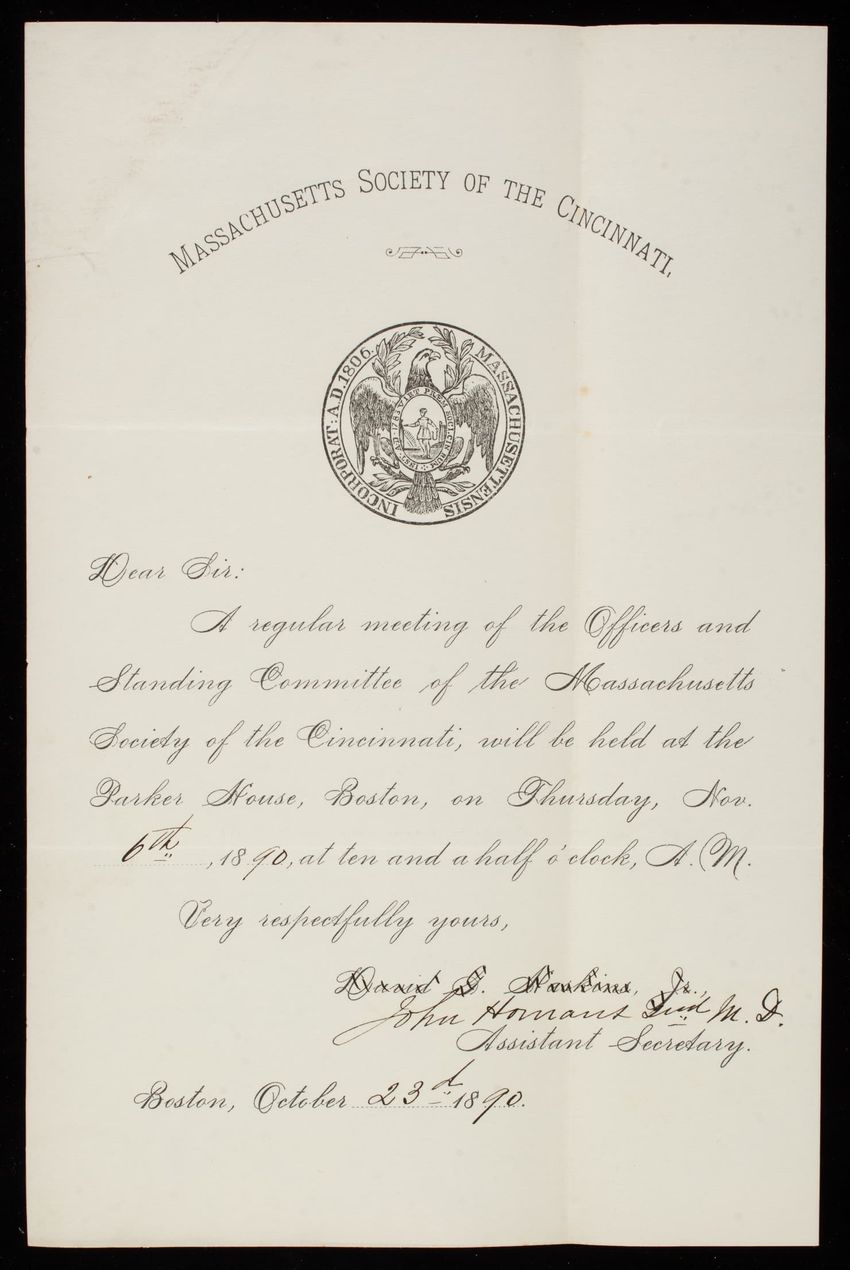 MASSACHUSETTS SOCIETY OF THE CINCINNATI.
INCORPORAT: A.D. 1806. MASSACHUSETTENSIS
Dear Sir:
A regular meeting of the Officers and
Standing Committee of the Massachusetts
Society of the Cincinnati, will be held at the
Parker House, Boston, on Thursday, Nov.
6th, 1890, at ten and a half o'clock, A. M.
Very respectfully yours,
David G. Haskins, Jr.,
John Homans 2nd M. D.
Assistant Secretary.
Boston, October 23d 1890.